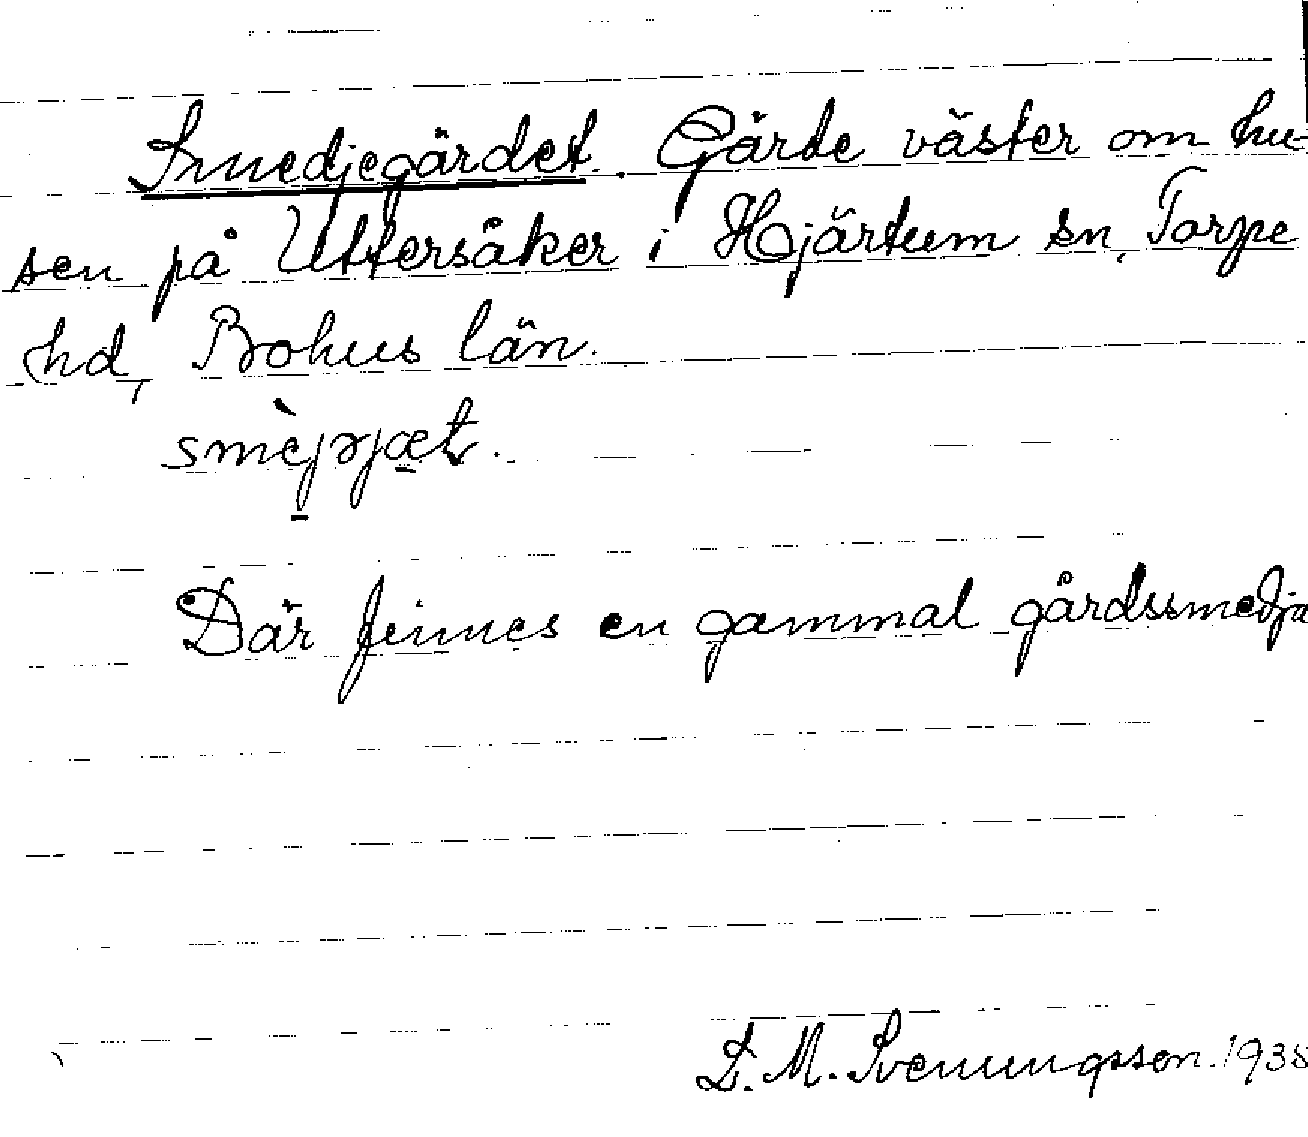 Smedjegärdet. Gärde väster om hu-
sen på Uttersåker i Hjärtum sn, Torpe
hd, Bohus län.
Där finnes en gammal gårdssmedja
D. M. Svenungsson. 1938